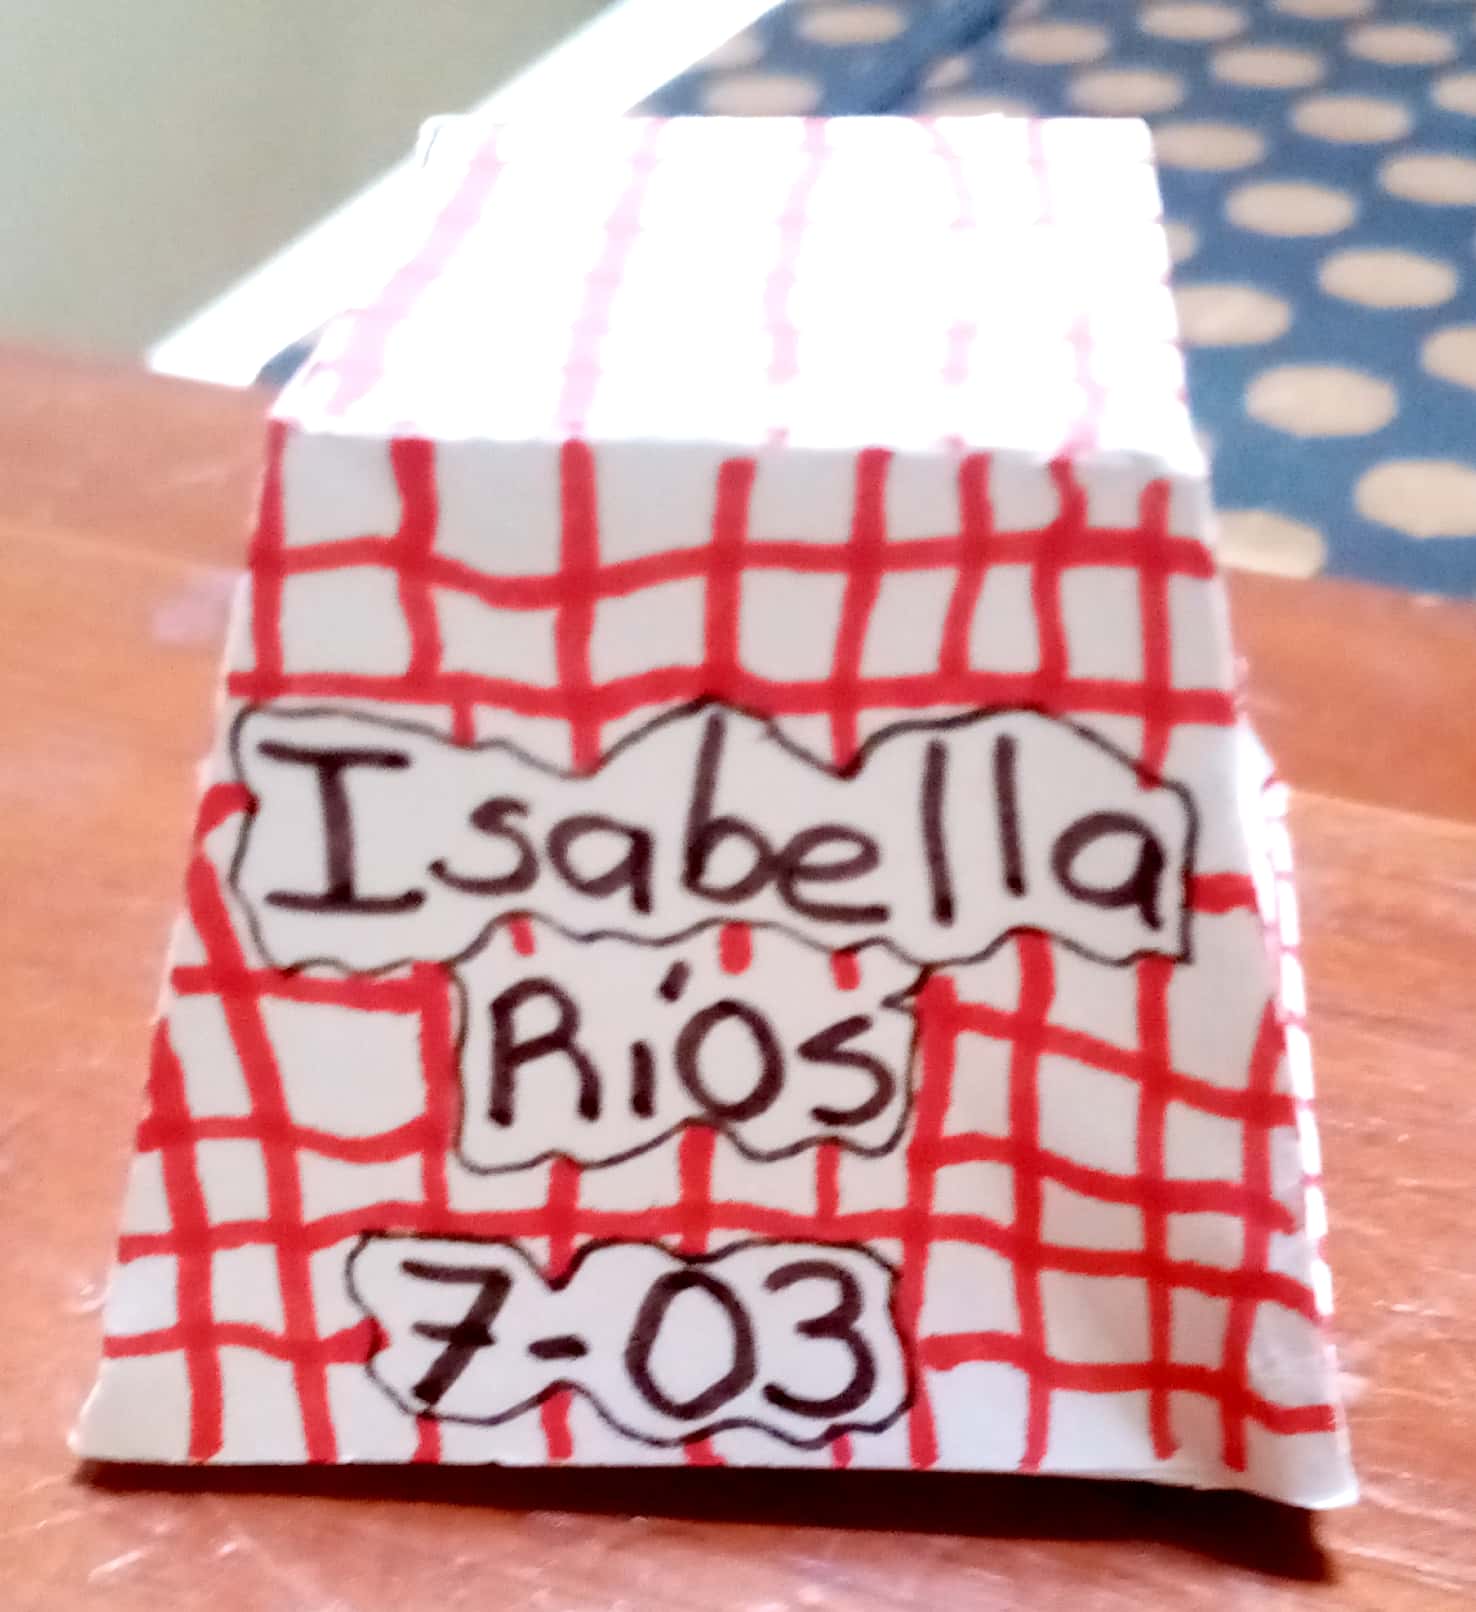 Isabella
Ríos
7-03